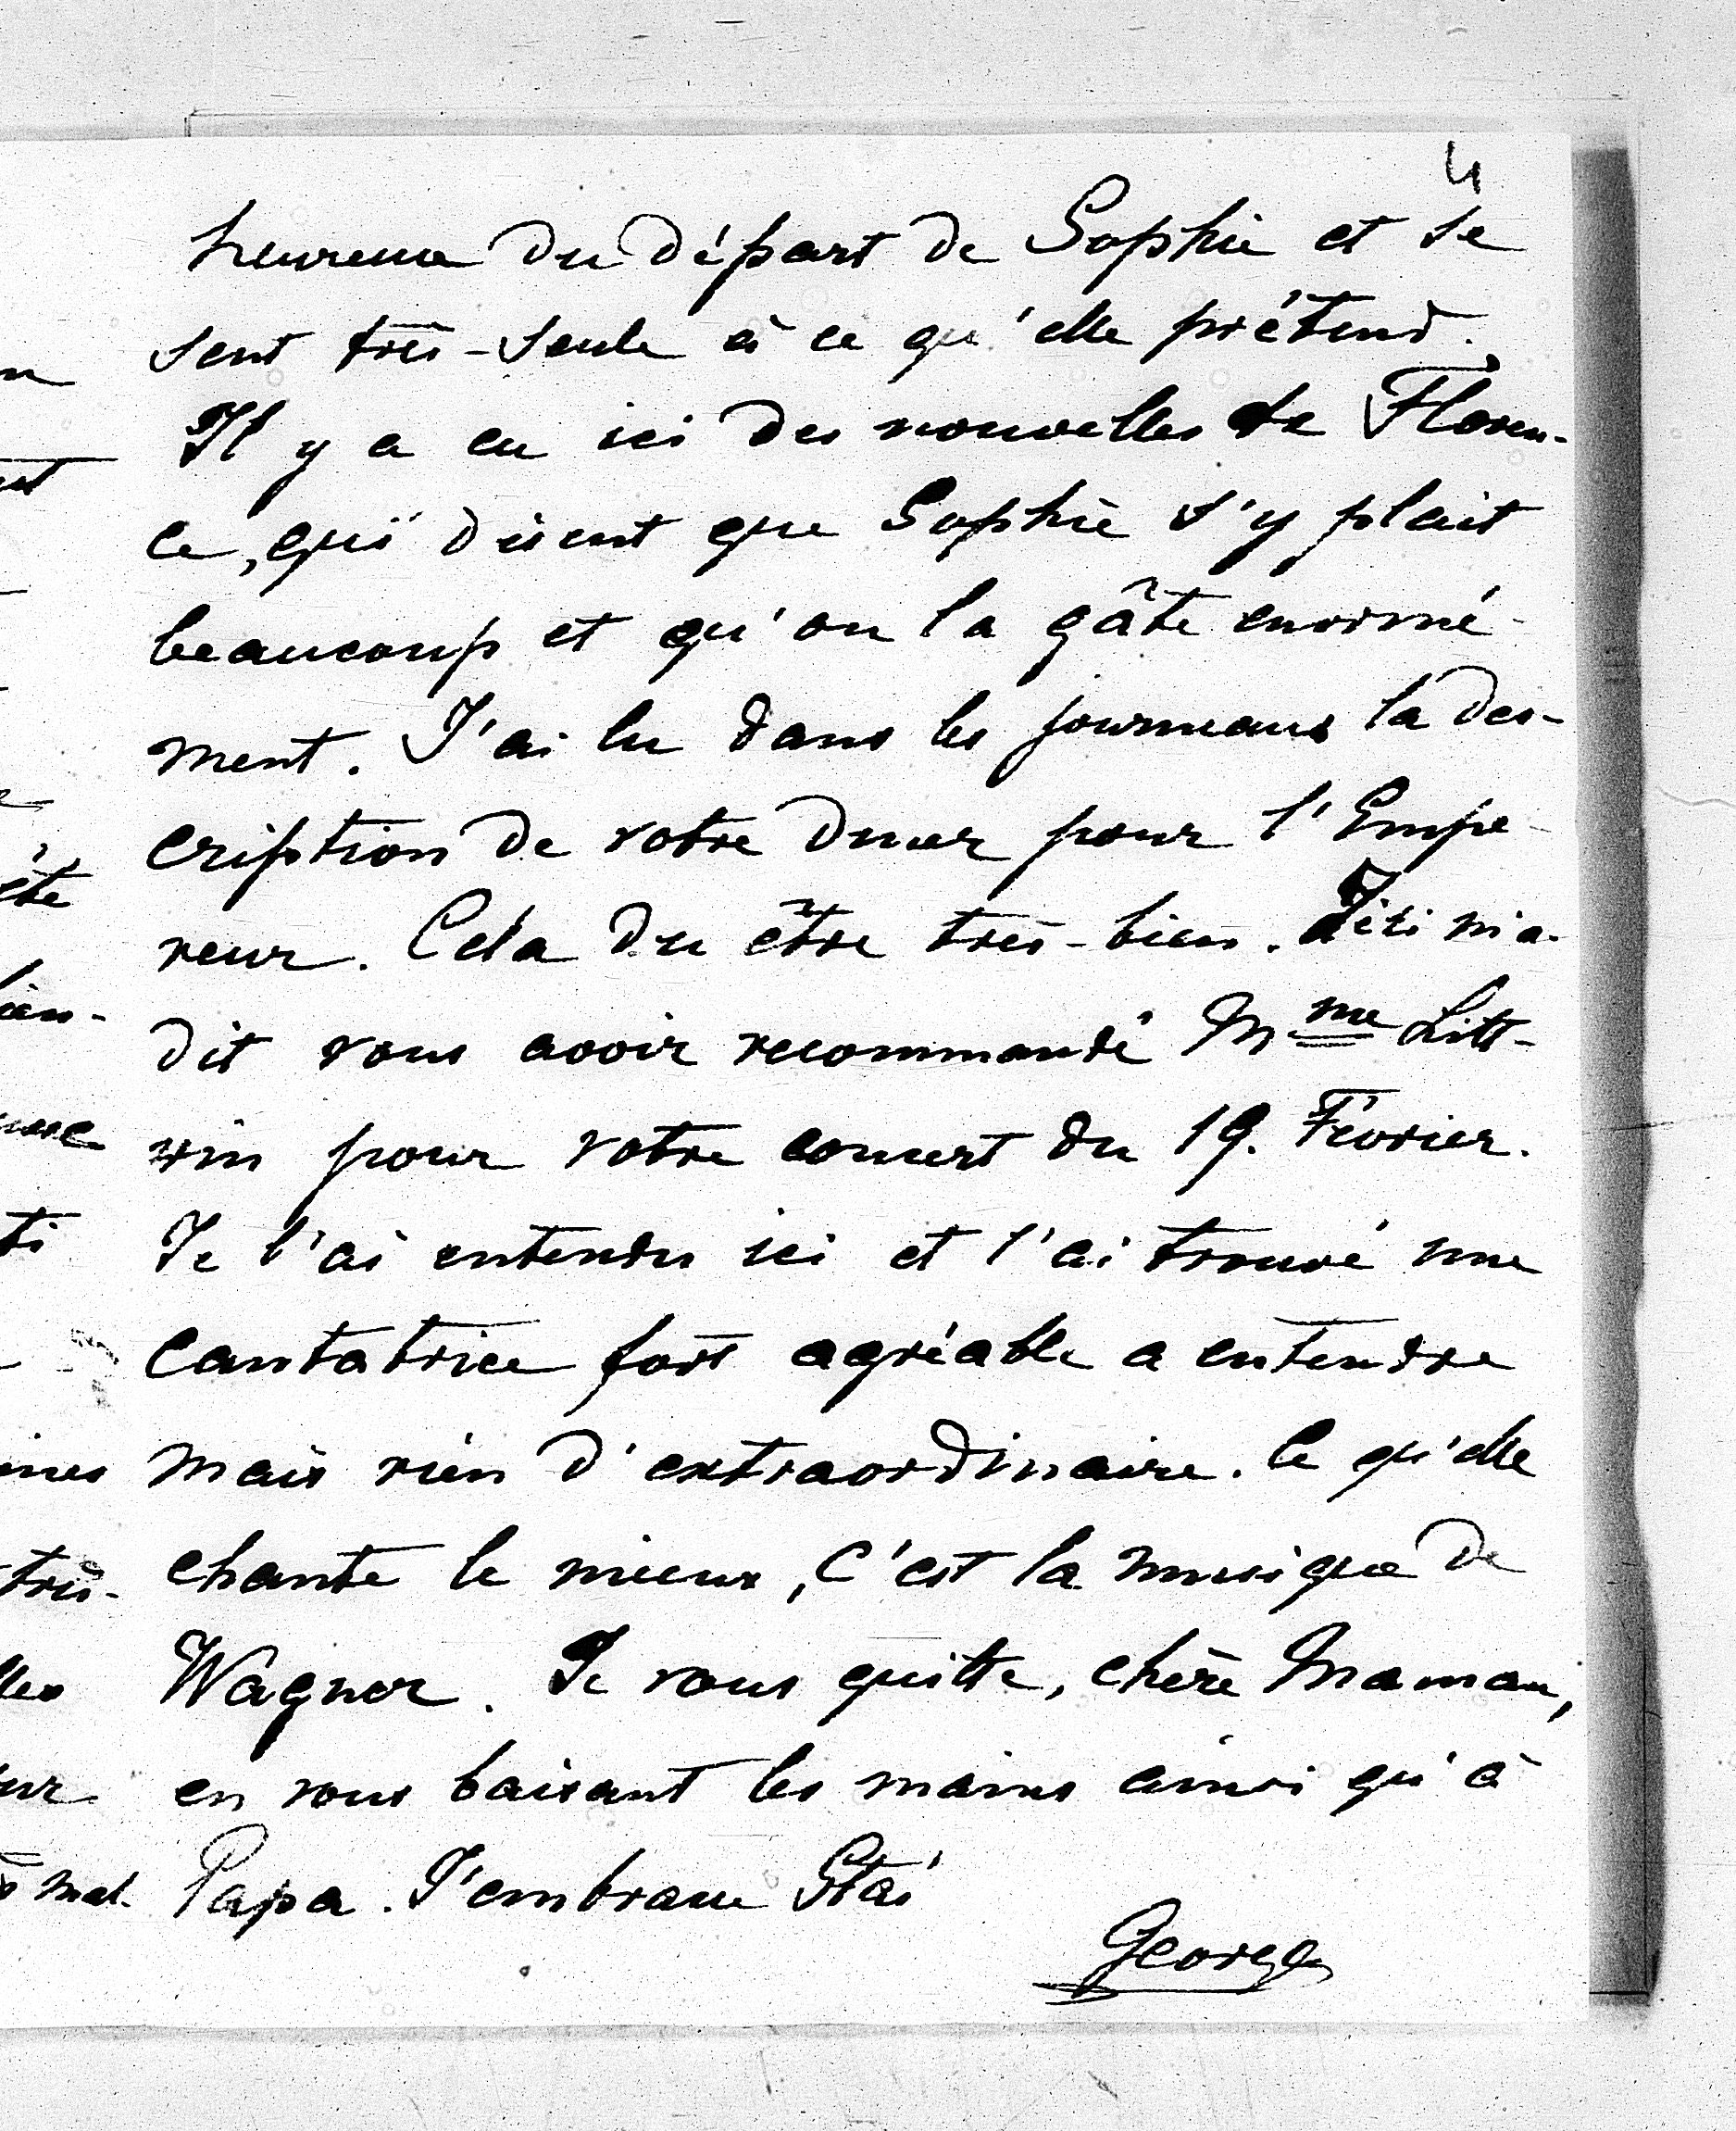 4
heureuse du départ de Sophie et se
sent très-seule à ce qu'elle prétend.
Il y a eu ici des nouvelles de Floren-
ce, qui disent que Sophie s'y plait
beaucoup et qu'on la gâte enormé-
ment. J'ai lu dans les journaux la des-
cription de votre diner pour l'Empe-
reur. Cela du être très-bien. m'a
dit vous avoir recommandé Mme Litt-
vin pour votre concert du 19. Février.
Je l'ai entendu ici et l'ai trouvé une
cantatrice fort agréable a entendre
mais rien d'extraordinaire. Ce qu'elle
chante le mieux, c'est la musique de
Wagner. Je vous quitte, chère Maman,
en vous baisant les mains ainsi qu'à
Papa. J'embrasse
George